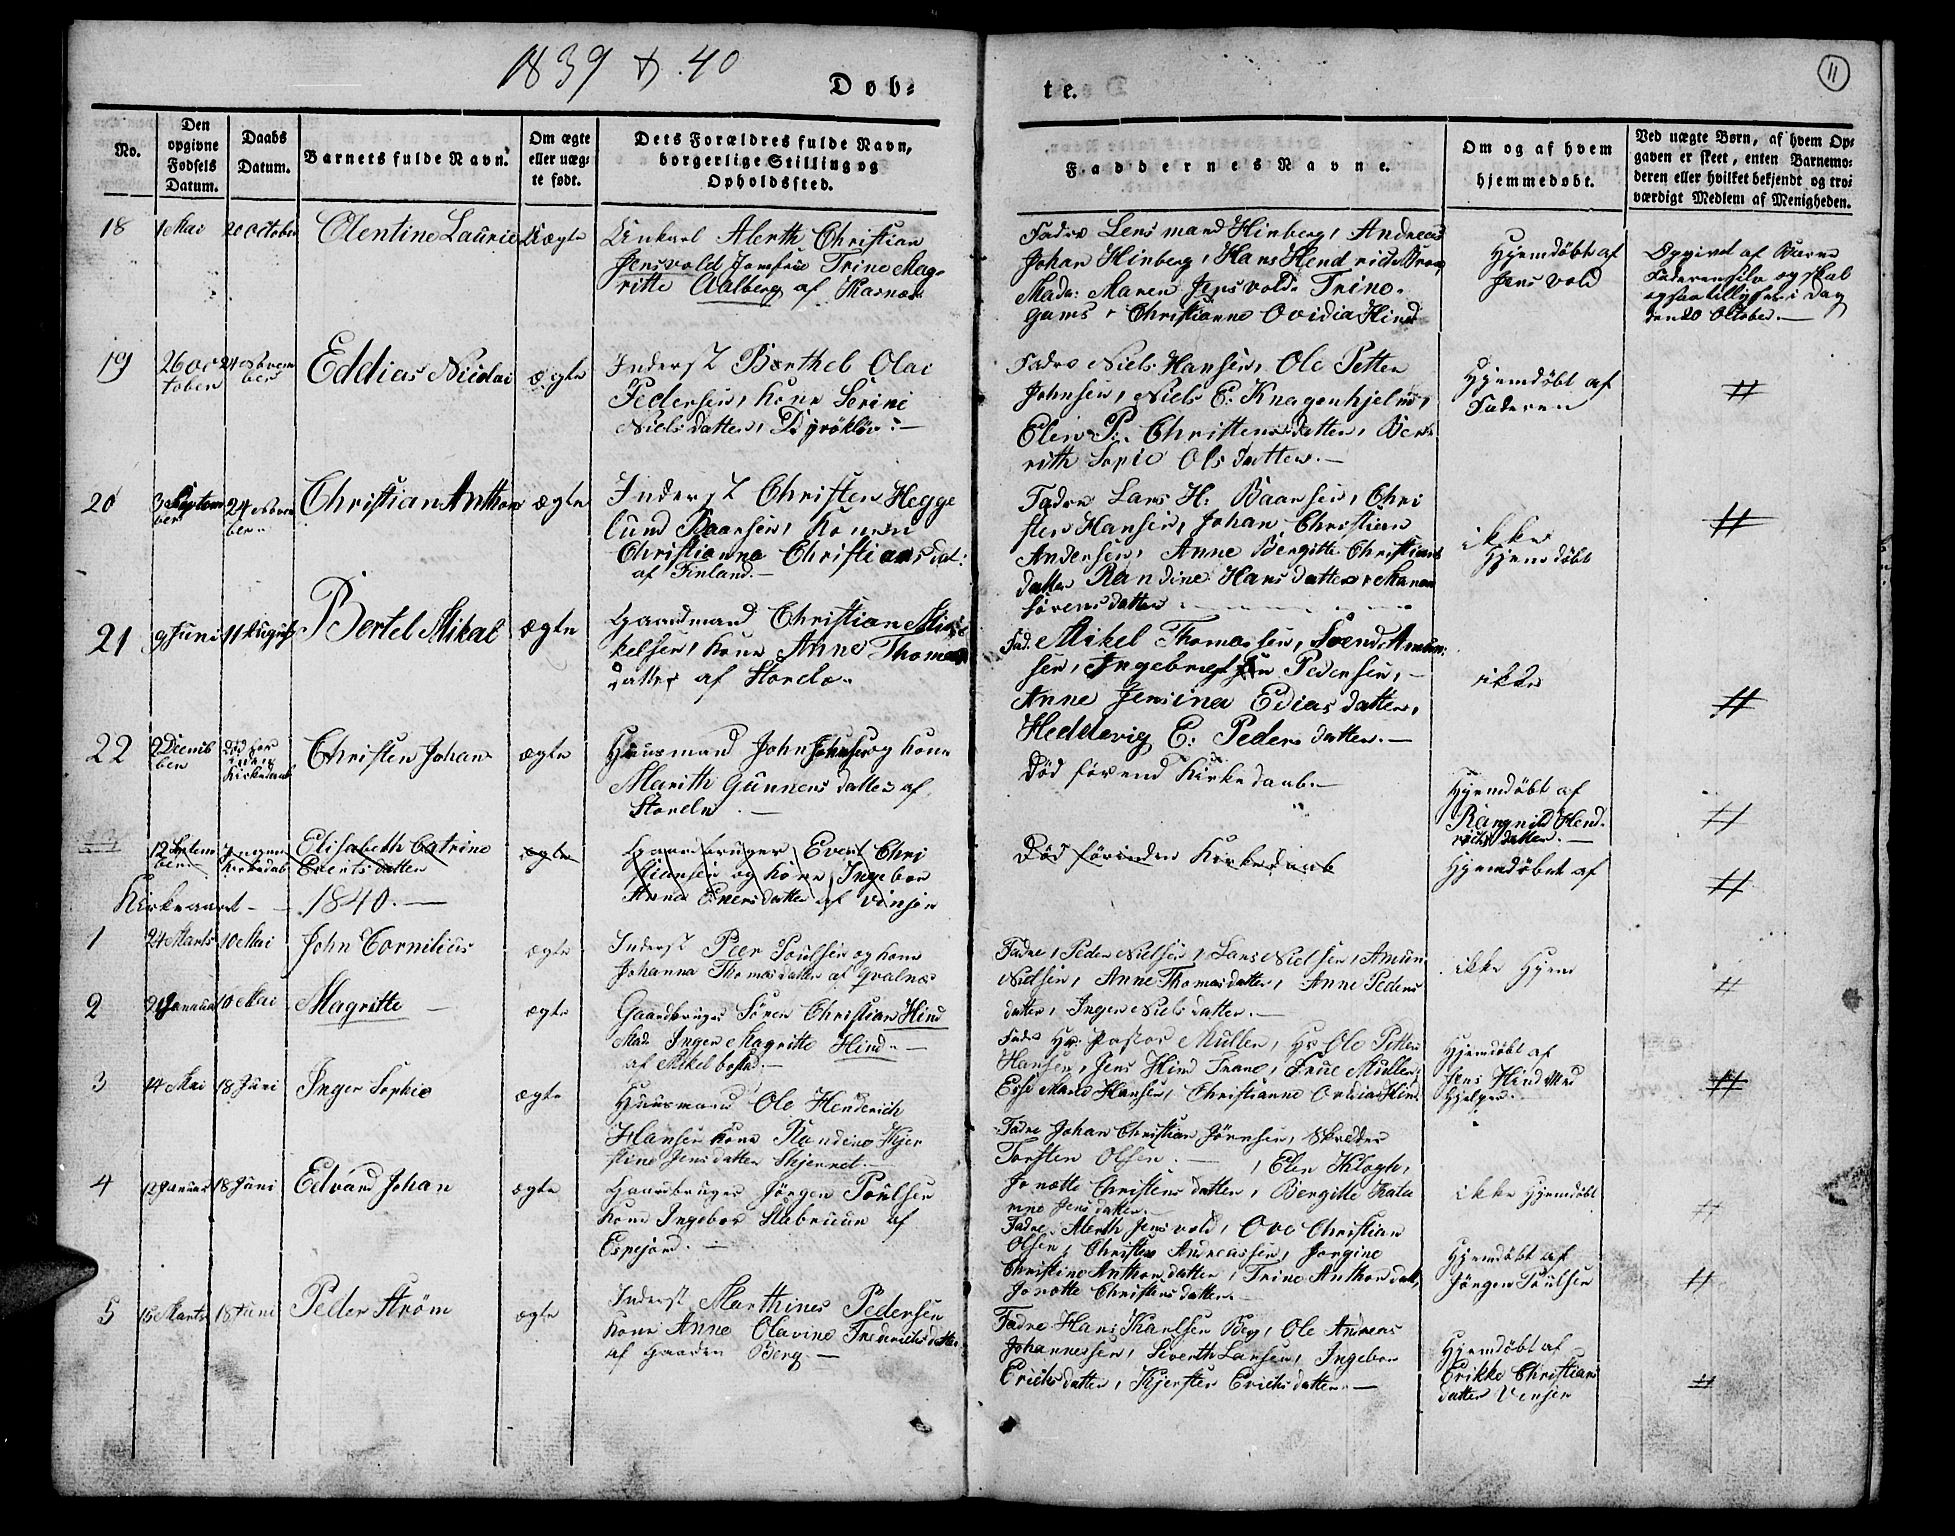 1839 & 40
Döb-
te.
11
No.
Den opgivne Fødsels Datum.
Daabs Datum.
Barnets fulde Navn.
Om ægte eller uæg-te født.
Dets Forældres fulde Navn, borgerlige Stilling og Opholdssted.
Faddernes Navne.
Om og af hvem hjemmedøbt.
Ved uægte Børn, af hvem Op-gaven er skeet, enten Barnemo-deren eller hvilket bekjendt og tro-værdigt Medlem af Menigheden.
18 1 Mai 20 October Olentine Laurie Uægte
Unkarl Alerth Christian
Jensvold Jomfrue Trine Mag-
ritte Aalberg af
Fadre Lensmand Hinberg, Andreas
Johan Hinberg, Hans Hendrich
Mada: Maren Jensvold. Trine
Christianne Ovidia Hind
Hjemdøbt af
Jens vold
Opgivet af Barne
Faderen selv og skal
i Dag
den 20 October.—
19 26 Oc
tober 24 Novem
ber Eddias Nicolai ægte
Inderst Berthel Olai
Pedersen, kone Serine
Nielsdatter,
Fadre Niels Hansen, Ole Petter
Johnsen, Niels E: Knagenhjelm,
Elen P. Christensdatter, Ber
rith Sopie Olsdatter.—
Hjemdøbt af
Faderen
#
20 3 Septem
ber 24 Novem
ber Christian Anthon ægte
Inderst Christen Hegge
lund Baarsen, Konen
Christianna Christiansdat:
af Finland.—
Fadre Lars H: Baarsen, Chri
sten Hansen, Johan Christian
Andersen, Anne Bergitte Christians
datter Randine Hansdatter, Maren
Sørensdatter
ikke
Hjemdøbt
#
21 9 Juni 11 August Bertel Mikal ægte
Gaardmand Christian Mi
kelsen, kone Anne Thomas
datter af Stordo.
Fad. Mikel Thomassen, Svend Amun
sen, Ingebregt Pedersen,
Anne Jensina Ediasdatter,
Heddevig E: Pedersdatter.—
ikke
#
22 2 Decemb
ber Død før
Kirkedaab Christen Johan ægte
Huusmand John Johnsen og kone
Marith Gunnersdatter af
Stordo
Død førend Kirkedaab.—
Hjemdøbt af
Rangnild Hend-
richsdatter.—
#
23 12 Septem
ber Ingen
Kirkedaab Elisabeth Catrine
Evertsdatter ægte
Gaardbruger Evert Chri
stiansen og kone Ingebor
Anna Enersdatter af Vinsen
Død førinden Kirkedaab
Hjemdøbet af
#
Kirkeaaret — 1840.—
1 24 Marts 10 Mai John Cornilius ægte
Inderst Peer Poulsen og kone
Johanna Thomasdatter af Hvalnæs
Fadre, Peder Nielsen, Lars Nielsen, Amun
Nielsen, Anne Thomasdatter, Anne Peders
datter, Inger Nielsdatter.—
ikke Hjem
#
2 Januar 10 Mai Magritte ægte
Gaardbruger Sören Christian Hind
Mad. Inger Magritte Hind.—
af Mikelbosted.—
Fadr Hr: Pastor Müller, Hr Ole Petter
Hansen, Jens Hind Frans, Frue Müller,
Else Marie Hansen, Christianne Ovidia Hind
Hjemdøbt af
Jens Hind
Hjelper.
#
3 14 Mai 18 Juni Inger Sophie ægte
Huusmand Ole Henderich
Hansen kone Randine Kjer
stine Jensdatter Skjernet.—
Fadre Johan Christian Jörnsen, Skredder
Torsten Olsen.— , Elen Klogh,
Jonette Christensdatter, Bergitte Kata
rine Jensdatter.—
ikke Hjemdøbt
#
4 12 Januar 18 Juni Edvard Johan ægte
Gaardbruger Jörgen Poulsen
Kone Ingebor Stabruun af
Espejord.—
Fadre Alerth Jensvold, Ove Christian
Olsen, Christen Andreassen, Jorgine
Christine Anthondatter, Trine Anthondatt,
Jonette Christensdatter.
Hjemdøbt af
Jörgen Poulsen
#
5 15 Marts 18 Juni Peder Ström ægte
Inderst Marthines Pedersen
Kone Anne Olavine Frederichsdatter
af Gaarden Berg.—
Fadre Hans Karlsen Berg, Ole Andreas
Johannessen, Siverth Larsen, Ingebor
Erichsdatter, Kjersten Erichsdatter.—
Hjemdøbt af
Erikke Christian
datter Vensen
#